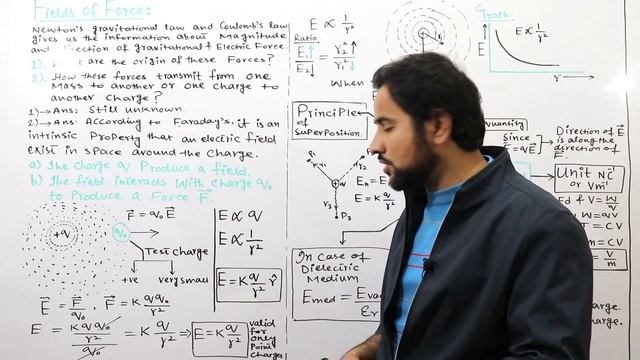 Fields of Forces:
Newton's gravitational law and Coulomb's law
gives us the information about Magnitude
and Direction of gravitational & Electric Force.
1). are the origin of these Forces?
2). How these forces transmit from one
Mass to another or one charge to
another charge?
1)→Ans: Still unknown.
2)→Ans: According to Faraday's, it is an
intrinsic Property that an electric field
exist in space around the charge.
a) The charge q Produce a field.
b) The field interacts with charge q₀
to Produce a Force F⃗.
+q
q₀
F⃗ = q₀E⃗
Test charge
+ve very small
E⃗ = F⃗/q₀ , F⃗ = K qq₀/r²
E = (K qq₀/r²)/q₀ = K q/r² ⇒ E = K q/r²
valid
for
only
Point
charges
E ∝ q
E ∝ 1/r²
E = K q/r² r̂
E ∝ 1/r²
Ratio:
E₁↑/E₂↓ = r₂²↑/r₁²↓
When
Principle
of
Superposition.
r₁
r₂
r₃
P₁
P₃
q
E = K q
In case of
Dielectric
Medium
E med =
r
Graph.
E
E ∝ 1/r²
r
quantity
Since
F⃗ = qE⃗
Direction of E⃗
is along the
direction of
F⃗.
Unit NC⁻¹
or Vm⁻¹
Fd & V = W/q
W = qV
= CV
m = CV
= V/m
charge.
charge.